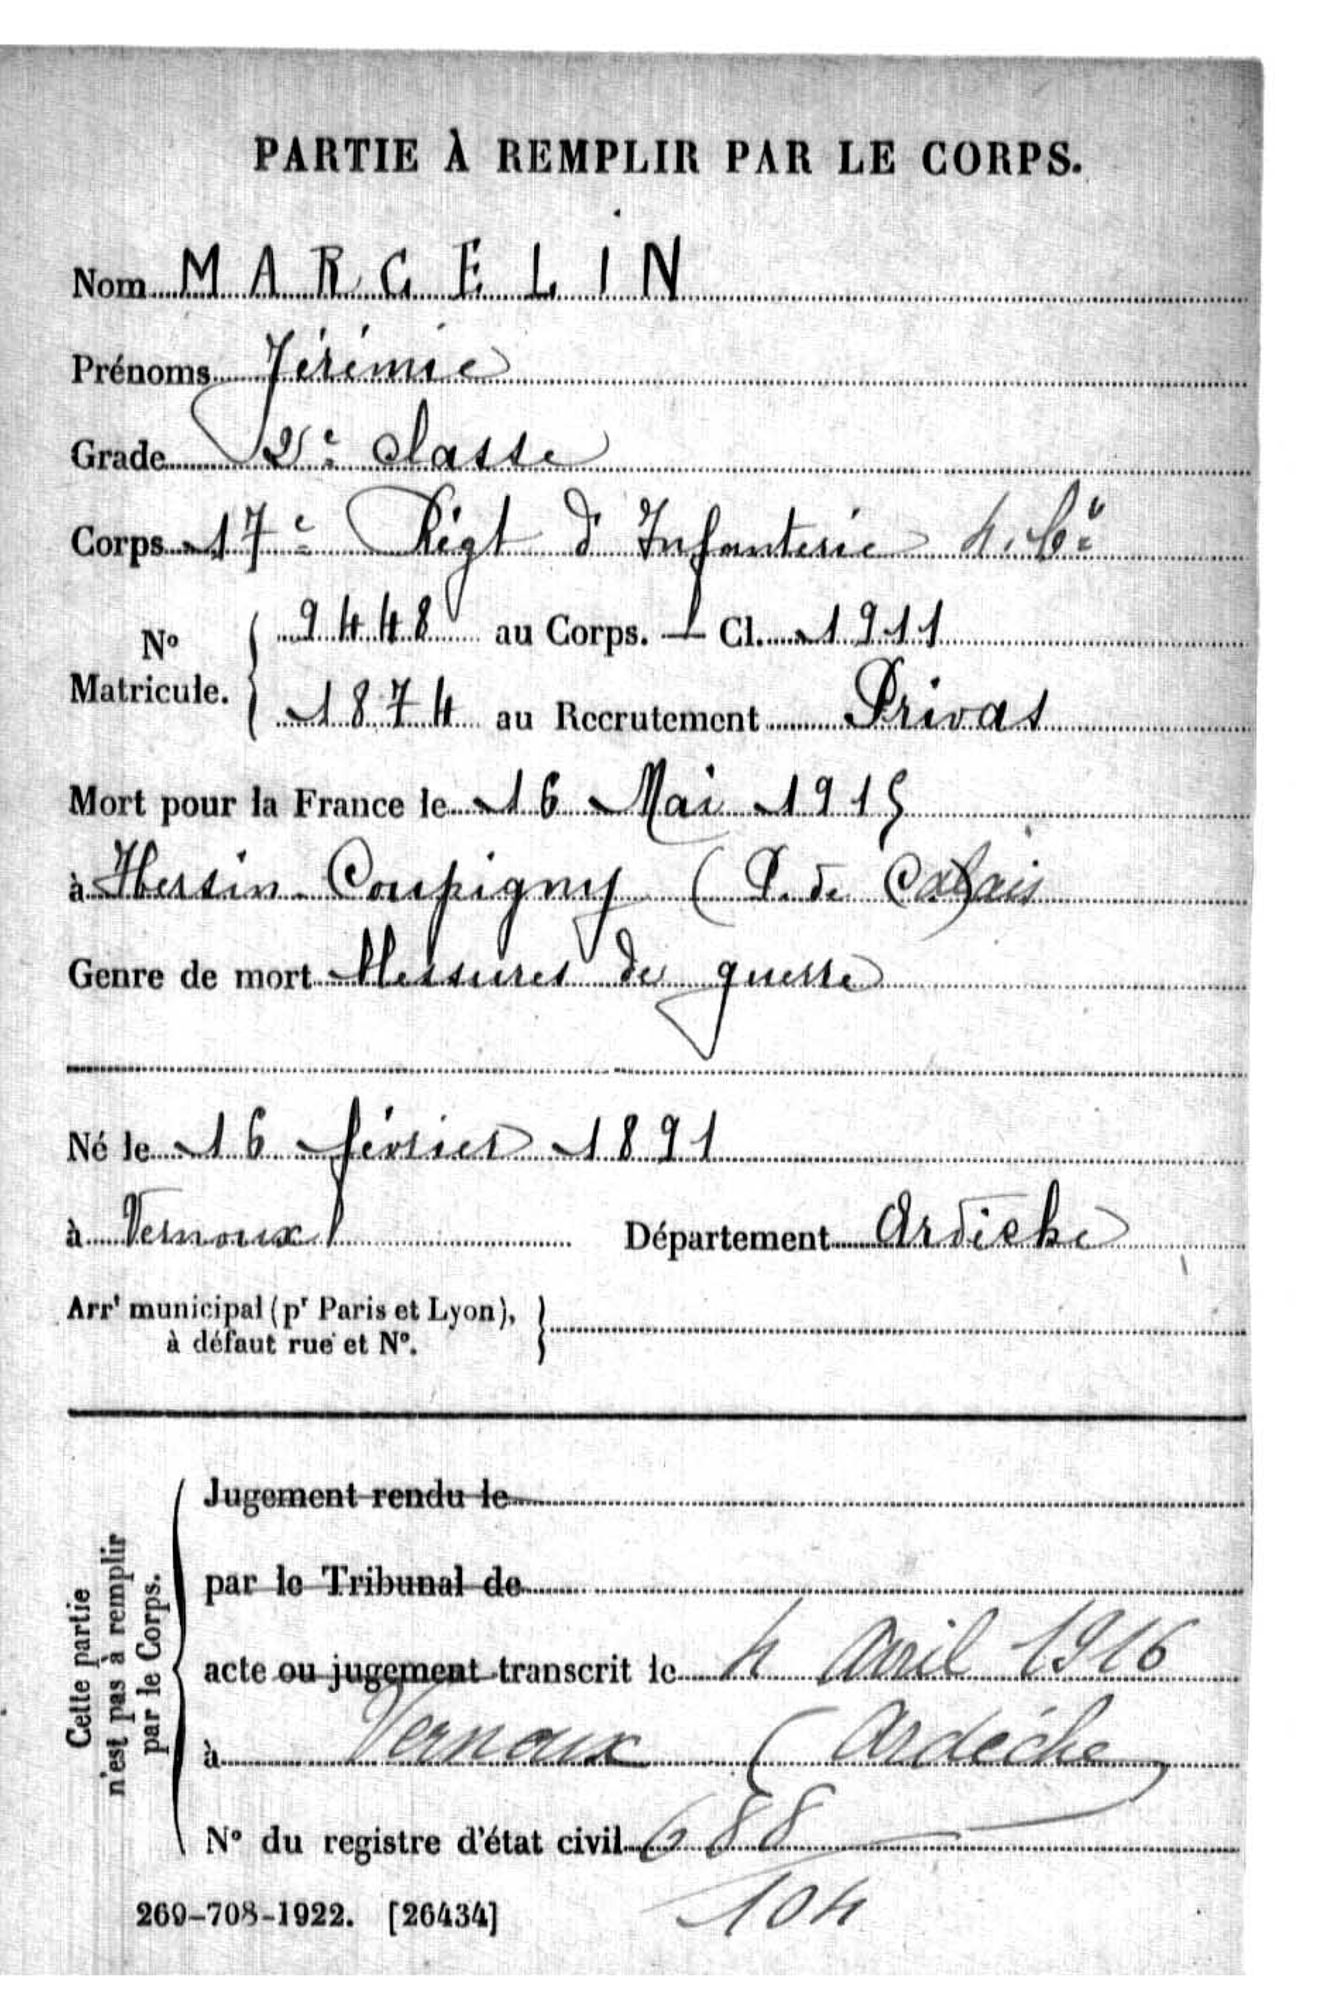 PARTIE À REMPLIR PAR LE CORPS.
Nom MARCELIN
Prénoms Jérémie
Grade 2e classe
Corps 17e Régt d'Infanterie 4. Cie
No Matricule. 9448 au Corps. — Cl. 1911
1874 au Recrutement Privas
Mort pour la France le 16 Mai 1915
à Hersin-Coupigny (P. de Calais)
Genre de mort blessures de guerre
Né le 16 février 1891
à Vernoux Département Ardèche
Arrt municipal (pr Paris et Lyon),
à défaut rue et No.
Cette partie
n'est pas à remplir
par le Corps.
Jugement rendu le
par le Tribunal de
acte ou jugement transcrit le 4 Avril 1916
à Vernoux (Ardèche)
No du registre d'état civil 688
104
269-708-1922. [26434]